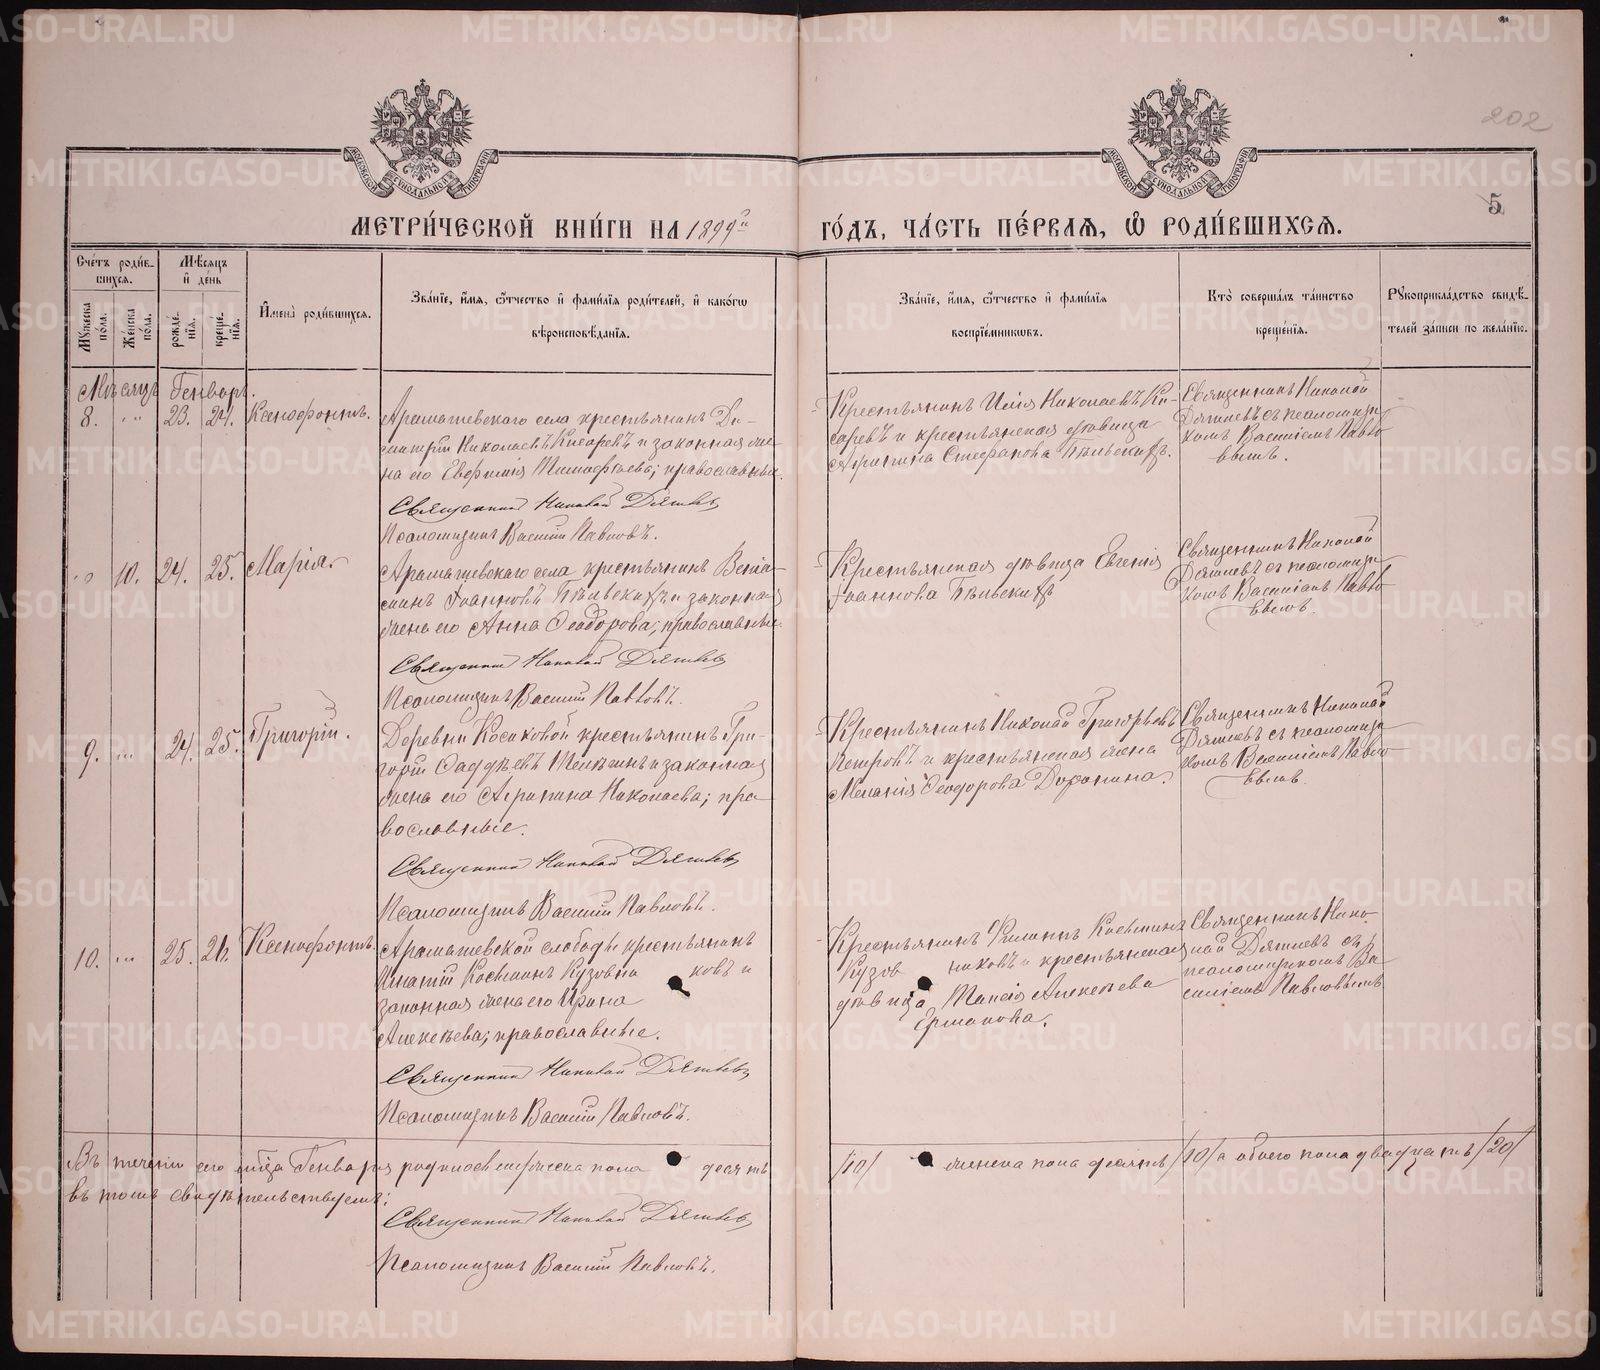 202
5
МОСКОВСКОЙ СѴНОДАЛЬНОЙ ТИПОГРАФІИ
МОСКОВСКОЙ СѴНОДАЛЬНОЙ ТИПОГРАФІИ
МЕТРИ́ЧЕСКОЙ КНИ́ГИ НА 1899й ГО́ДЪ, ЧА́СТЬ ПЕ́РВАЯ, Ѡ҆ РОДИ́ВШИХСЯ.
Сче́тъ роди́в-
шихся.
Му́жеска по́ла.
Же́нска по́ла.
Мѣ́сяцъ и҆ де́нь
рожде́нія.
креще́нія.
И҆мена̀ роди́вшихся.
Зва́ніе, и҆́мя, ѻ҆́тчество и҆ фами́лія роди́телей, и҆ како́гѡ
вѣроисповѣ́данія.
Зва́ніе, и҆́мя, ѻ҆́тчество и҆ фами́лія
воспріе́мниковъ.
Кто̀ соверша́лъ та́инство
креще́нія.
Рꙋкоприкла́дство свидѣ́-
телей за́писи по жела́нію.
Мѣсяцъ Генварь.
8. " 23. 24. Ксенофонтъ.
Арамашевскаго села крестьянинъ Ди-
митрій Николаевъ Писаревъ и законная же-
на его Евфимія Тимофѣева; православные.
Священникъ Николай Дягилевъ
Псаломщикъ Василій Павловъ.
Крестьянинъ Илія Николаевъ Пи-
саревъ и крестьянская дѣвица
Агрипина Стефанова Бѣльскихъ.
Священникъ Николай
Дягилевъ съ псаломщи-
комъ Василіемъ Павло-
вымъ.
" 10. 24. 25. Марія.
Арамашевскаго села крестьянинъ Веніа-
минъ Іоанновъ Бѣльскихъ и законная
жена его Анна Ѳеодорова; православные.
Священникъ Николай Дягилевъ
Псаломщикъ Василій Павловъ.
Крестьянская дѣвица Евгенія
Іоаннова Бѣльскихъ
Священникъ Николай
Дягилевъ съ псаломщи-
комъ Василіемъ Павло-
вымъ.
9. " 24. 25. Григорій.
Деревни Косиковой крестьянинъ Гри-
горій Ѳаддѣевъ и законная
жена его Агрипина Николаева; пра-
вославные.
Священникъ Николай Дягилевъ
Псаломщикъ Василій Павловъ.
Крестьянинъ Николай Григорьевъ
Петровъ и крестьянская жена
Меланія Ѳеодорова Доронина.
Священникъ Николай
Дягилевъ съ псаломщи-
комъ Василіемъ Павло-
вымъ.
10. " 25. 26. Ксенофонтъ.
Арамашевской слободы крестьянинъ
Игнатій Косминъ Кузовниковъ и
законная жена его Ирина
Алексѣева; православные.
Священникъ Николай Дягилевъ
Псаломщикъ Василій Павловъ.
Крестьянинъ Филиппъ Косминъ
Кузовниковъ и крестьянская
дѣвица Таисія Алексѣева
Ермакова.
Священникъ Нико-
лай Дягилевъ съ
псаломщикомъ Ва-
силіемъ Павловымъ
Въ теченіи сего мѣсяца Генваря родилось мужеска пола десять /10/ женска пола десять /10/ а обоего пола двадцать /20/
въ томъ свидѣтельствуемъ:
Священникъ Николай Дягилевъ
Псаломщикъ Василій Павловъ.